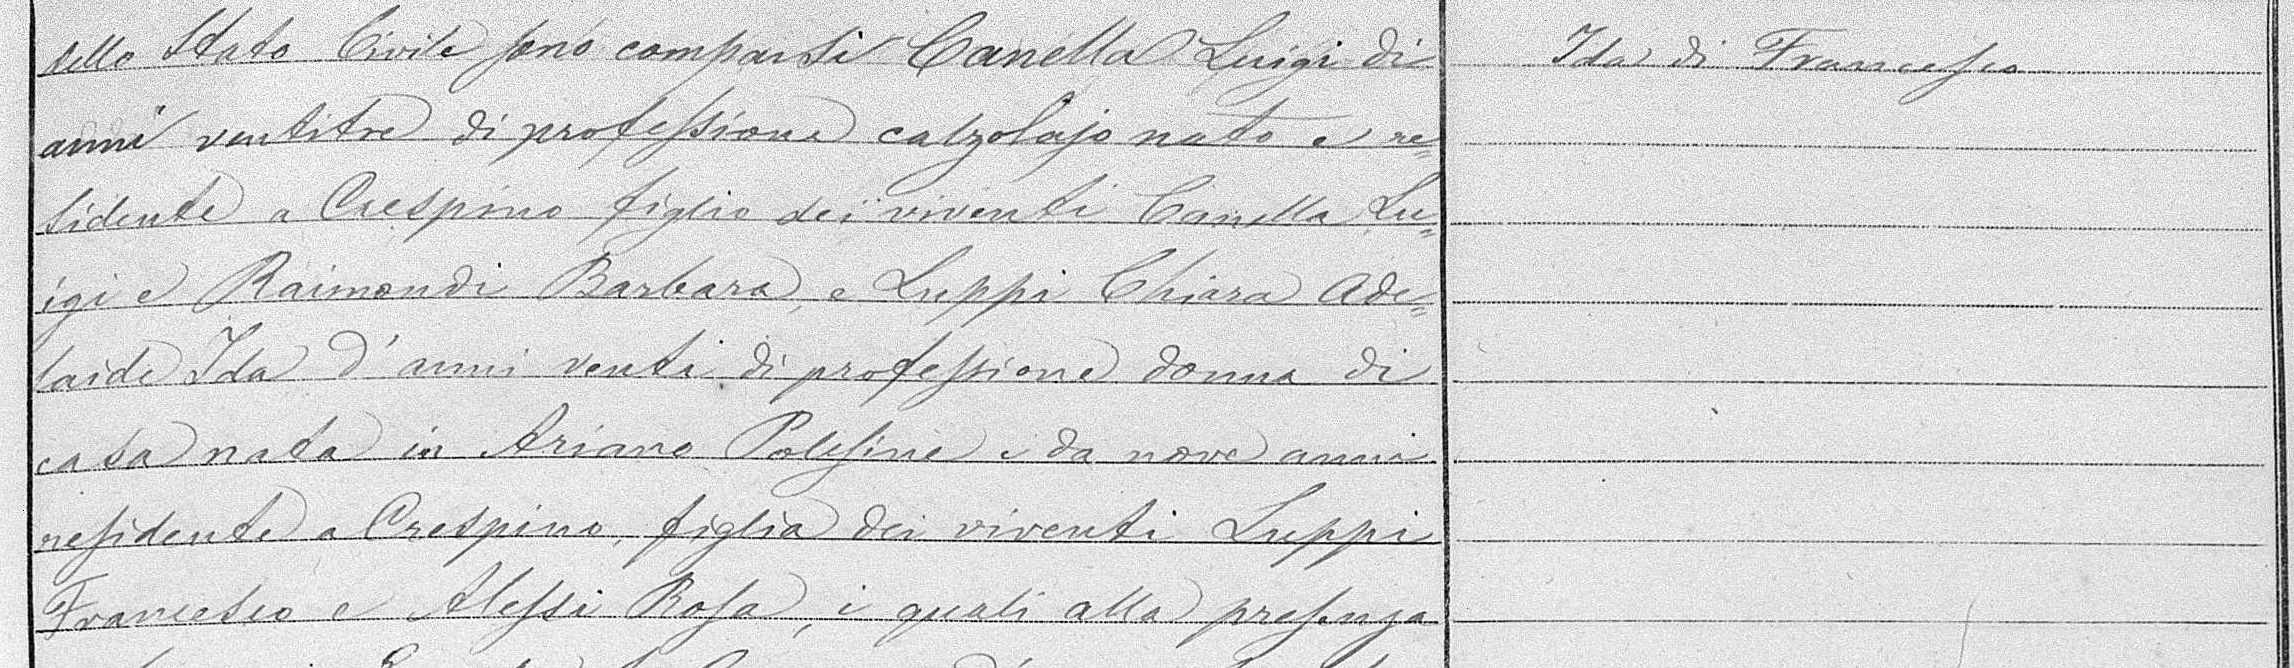 dello Stato Civile sono comparsi Canella Luigi di
anni ventitre di professione calzolajo nato e re=
sidente a Crespino figlio dei viventi Canella Lu=
igi e Raimondi Barbara, e Luppi Chiara Ade=
laide Ida d'anni venti di professione donna di
casa nata in Ariano Polesine e da nove anni
residente a Crespino, figlia dei viventi Luppi
Francesco e Alessi Rosa, i quali alla presenza
Ida di Francesco